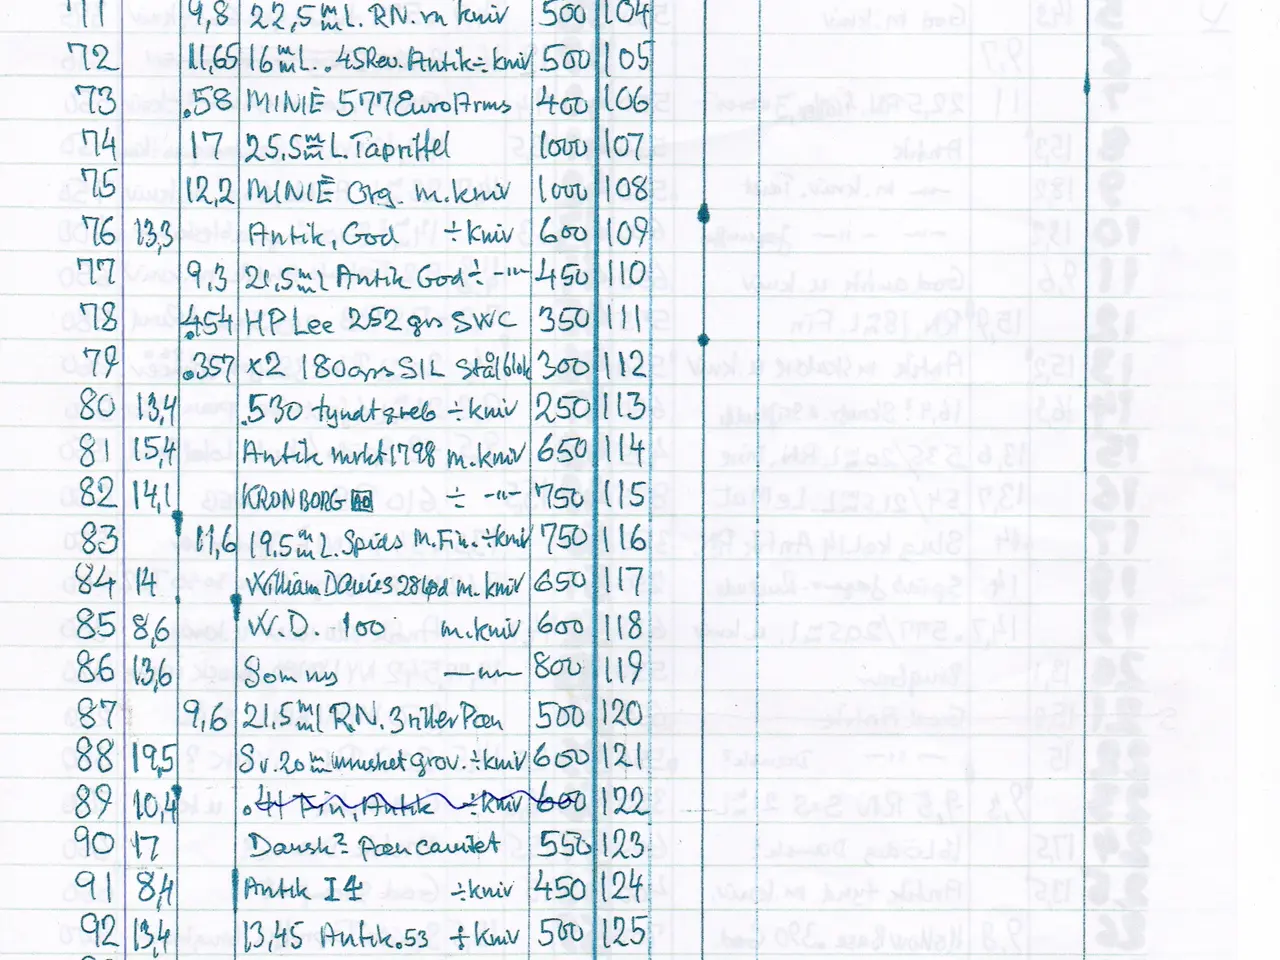 71 9,8 22,5 m/m L. RN. m kniv 500 104
72 11,65 16 m/m L. .45 Rev. Antik ÷ kniv 500 105
73 .58 MINIÈ 577 EuroArms 400 106
74 17 25,5 m/m L. Tapriffel 1000 107
75 12,2 MINIÈ Org. m. kniv 1000 108
76 13,3 Antik, God ÷ kniv 600 109
77 9,3 21,5 m/m l Antik God ÷ -"- 450 110
78 .454 HP Lee 252 grs SWC 350 111
79 .357 x2 180 grs SIL Stålblok 300 112
80 13,4 .530 tyndt greb ÷ kniv 250 113
81 15,4 Antik mrkt 1798 m. kniv 650 114
82 14,1 KRONBORG ÷ -"- 750 115
83 11,6 19.5 m/m L. Spids M. Fin ÷ kniv 750 116
84 14 William Davies 28 m. kniv 650 117
85 8,6 W.D. -100 m. kniv 600 118
86 13,6 Som -"- 800 119
87 9,6 21.5 m/m l RN. 3 riller Pæn 500 120
88 19,5 Sv. 20 m/m musket grov. ÷ kniv 600 121
89 10,4 .44 Fin, Antik ÷ kniv 600 122
90 17 Dansk? Pæn 550 123
91 8,4 Antik I4 ÷ kniv 450 124
92 13,4 13,45 Antik .53 ÷ kniv 500 125